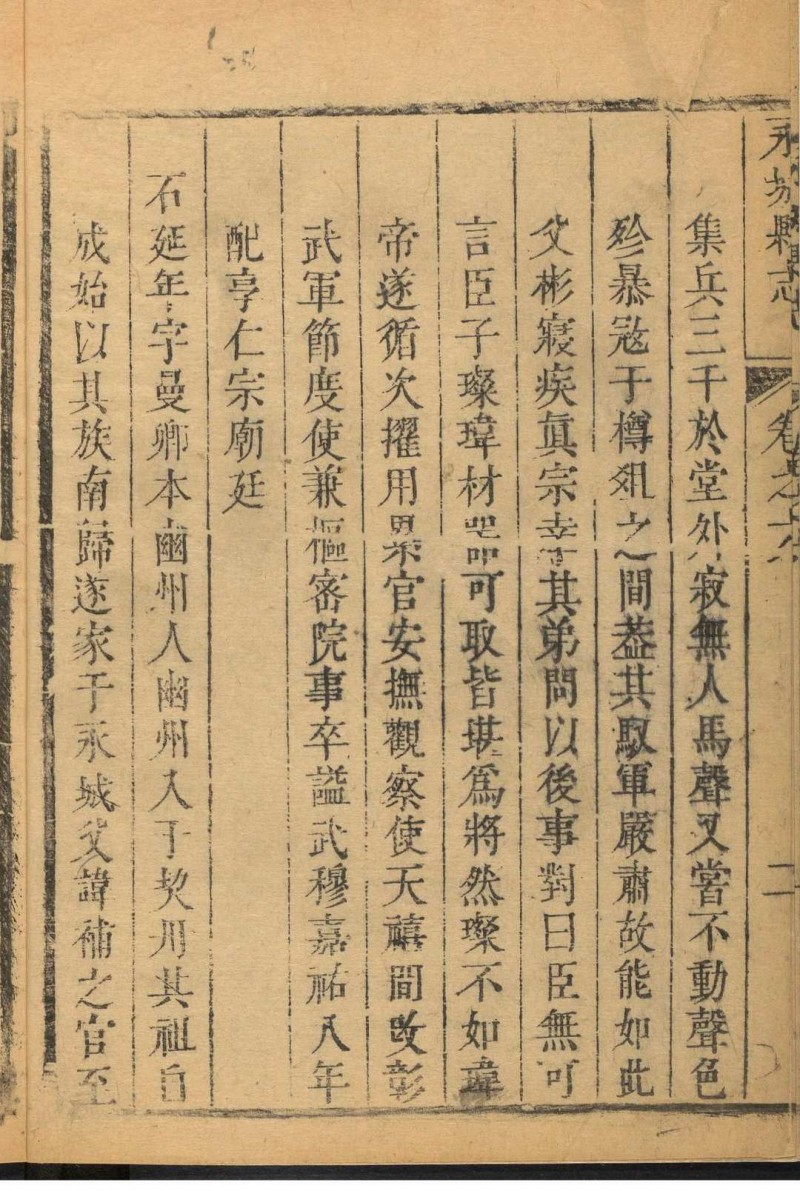 永城縣志 卷之六 二
集兵三千於堂外寂無人馬聲又嘗不動聲色
殄暴𡨥于樽俎之間葢其馭軍嚴肅故能如此
父彬寢疾眞宗幸其弟問以後事對曰臣無可
言臣子璨瑋材器可取皆堪爲將然璨不如瑋
帝遂循次擢用累官安撫觀察使天禧間改彰
武軍節度使兼樞密院事卒謚武穆嘉祐八年
配享仁宗廟廷
石延年字曼卿本幽州人幽州入于契丹其祖自
成始以其族南歸遂家于永城父諱補之官至